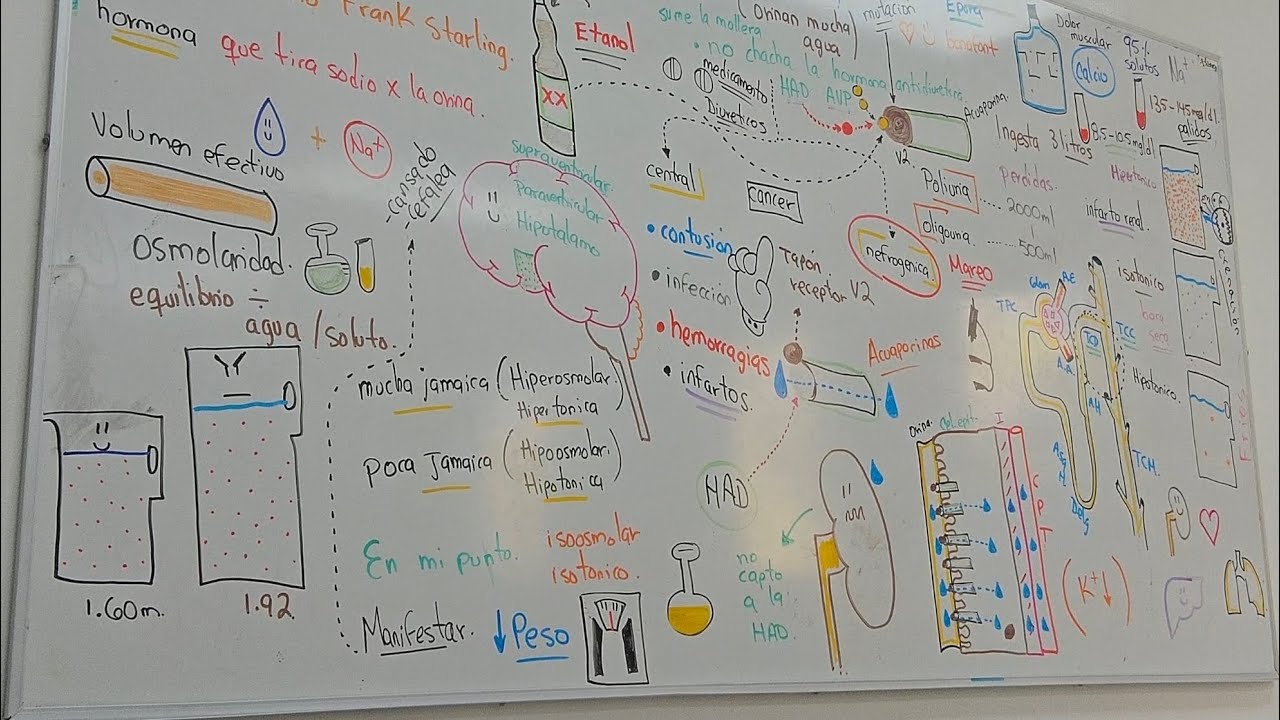 Frank Starling.
hormona
que tira sodio x la orina.
Volumen efectivo
+ Na+
Osmolaridad.
equilibrio ÷
agua / soluto.
1.60m.
1.92
-cansado
cefalea
mucha jamaica (Hiperosmolar.
Hipertonica)
poca Jamaica (Hipoosmolar.
Hipotonica)
En mi punto.
isoosmolar
isotonico.
Manifestar. ↓ Peso
XX
Etanol
supraventricular
Paraventricular
Hipotalamo
(orinan mucha
agua)
sume la mollera
• no chacha la hormona antidiuretica.
medicamento
Diureticos
HAD AVP
mutacion
V2
Acuaporina.
central
cancer
nefrogenica
• contusion
• infección
• hemorragias
• infartos.
Tapón
receptor V2
Acuaporinas
HAD
no
capto
a la
HAD.
Mareo
Dolor
muscular
Calcio
95%
solutos
Na+
135-145mg/dl.
8.5-10.5mg/dl
palidos
Ingesta 3 litros
perdidas.
Poliuria ..... 2000ml
Oligouria. ..... 500ml
Hipertónico
infarto renal.
isotonico
boca
seca
Hipotonico.
Glom
A.E
TPC
A.A.
TCD
TCC
AH
TCM.
Orina.
Cel epit.
I
C
P
T
(K+↓)